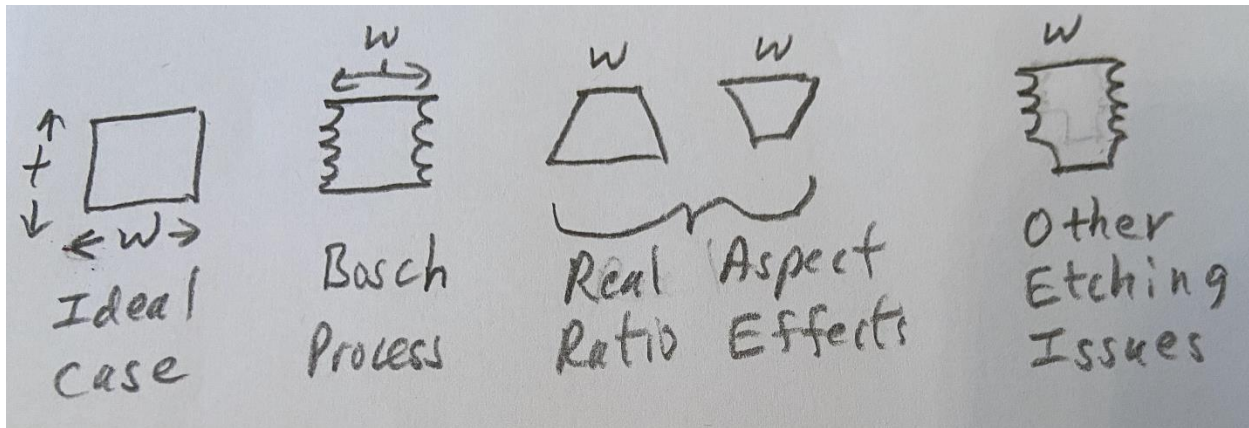 W
W
W
W
t
W
Ideal
Case
Bosch
Process
Real Aspect
Ratio Effects
Other
Etching
Issues